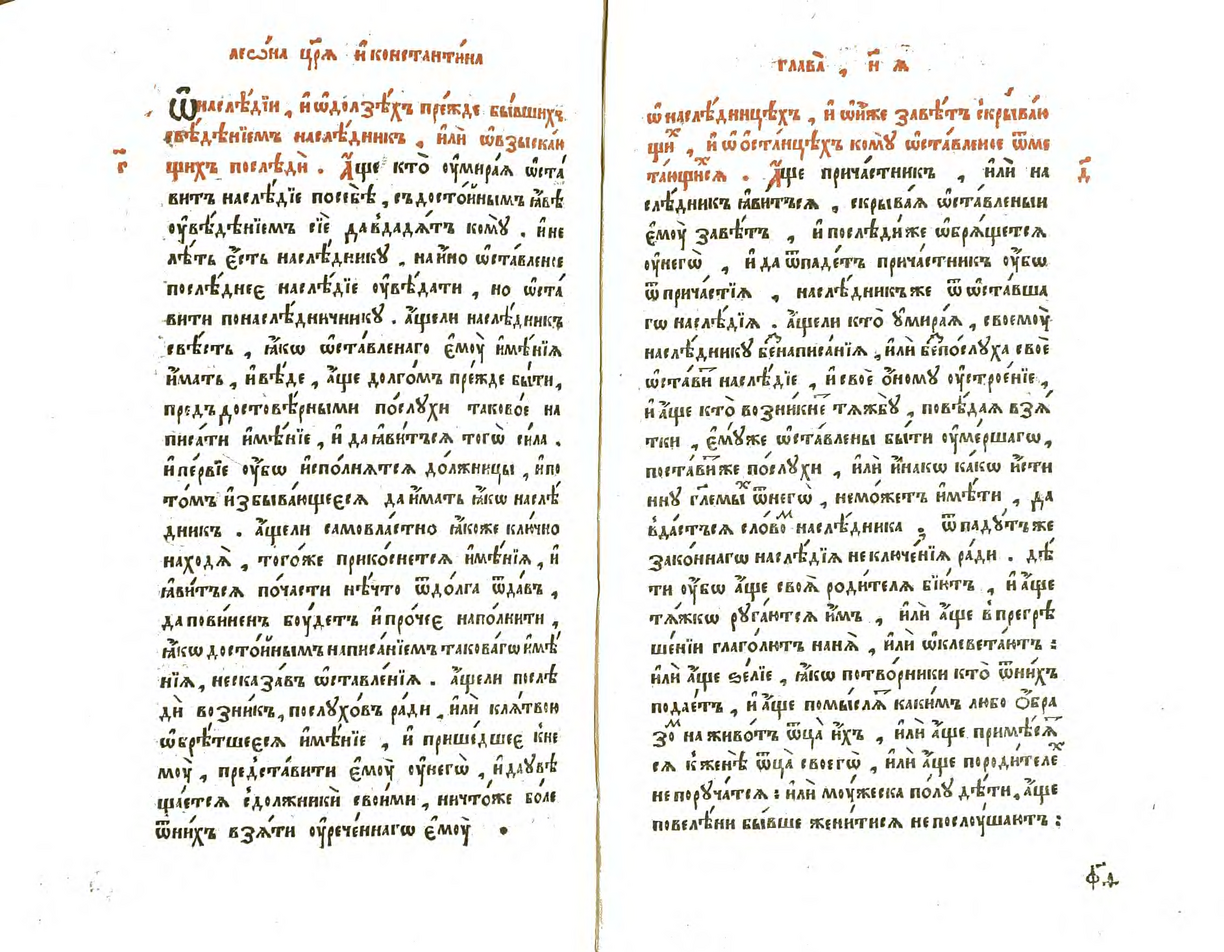 леѡ́на цр҃ѧ и҆ константи́на
Ѿ наслѣ́дїи , и҆ ѡ҆ долзѣ́хъ пре́жде бы́вшихъ
свѣ́дѣнїемъ наслѣ́дникъ , и҆лѝ ѡ҆ взыскаю
г҃
щихъ послѣдѝ . А҆́ще кто̀ оу҆мира́ѧ ѡ҆ста
витъ наслѣ́дїе посебѣ̀ , съ досто́йнымъ ꙗ҆́вѣ
оу҆вѣ́дѣнїемъ сїѐ да вдадѧ́тъ комꙋ̀ . и҆ не
лѣ́ть є҆́сть наслѣ́дникꙋ , на и҆́но ѡ҆ста́вленое
послѣ́днее наслѣ́дїе оу҆вѣ́дати , но ѡ҆ста́
вити понаслѣ́дничникꙋ . а҆́щели наслѣ́дникъ
свѣ́сть , ꙗ҆́кѡ ѡ҆ста́вленаго є҆мꙋ̀ и҆мѣ́нїѧ
и҆́мать , и҆ вѣ́де , а҆́ще долго́мъ пре́жде бы́ти ,
предъ достовѣ́рными по́слꙋхи таково́е на
писа́ти и҆мѣ́нїе , и҆ да ꙗ҆ви́тьсѧ тогѡ̀ си́ла .
и҆ пе́рвїе оу҆́бѡ и҆спо́лнѧтсѧ до́лжницы , и҆ по
то́мъ и҆збыва́ющеесѧ да и҆́мать ꙗ҆́кѡ наслѣ́
дникъ . а҆́щели самовла́стно ꙗ҆́коже клю́чно
находѧ̀ , того́же прико́снетсѧ и҆мѣ́нїѧ , и҆
ꙗ҆ви́тьсѧ по́части нѣ́что ѿ до́лга ѿда́въ ,
да пови́ненъ бꙋ́детъ и҆ про́чее напо́лнити ,
ꙗ҆́кѡ досто́йнымъ написа́нїемъ такова́гѡ и҆мѣ́
нїѧ , не сказа́въ ѡ҆ставле́нїѧ . а҆́щели послѣ
дѝ возни́къ , послꙋ́хѡвъ ра́ди , и҆лѝ клѧ́твою
ѡ҆брѣ́тшеесѧ и҆мѣ́нїе , и҆ прише́дшее к̾не
мꙋ̀ , предста́вити є҆мꙋ̀ оу҆ негѡ̀ , и҆ да оу҆вѣ
ща́етсѧ с̾до́лжники свои́ми , ничто́же бо́ле
ѿ ни́хъ взѧ́ти оу҆рече́ннагѡ є҆мꙋ̀ .
глава̀ , н҃ и҆ а҃
ѡ҆ наслѣ́дницѣхъ , и҆ ѡ҆ и҆́же завѣ́тъ скрыва́ю
щихъ , и҆ ѡ҆ ѡ҆ста́нцѣхъ комꙋ̀ ѡ҆ста́вленое ѿме
та́ющихсѧ . А҆́ще прича́стникъ , и҆лѝ на
д҃
слѣ́дникъ ꙗ҆ви́тьсѧ , скрыва́ѧ ѡ҆ста́вленыи
є҆мꙋ̀ завѣ́тъ , и҆ послѣди́же ѡ҆брѧ́щетсѧ
оу҆ негѡ̀ , и҆ да ѿпаде́тъ прича́стникъ оу҆́бѡ
ѿ прича́стїѧ , наслѣ́дникъ же ѿ ѡ҆ста́вша
гѡ наслѣ́дїѧ . а҆́щели кто̀ оу҆мира́ѧ , своемꙋ̀
наслѣ́дникꙋ без̾ написа́нїѧ , и҆лѝ без̾ по́слꙋха своѐ
ѡ҆ста́вит наслѣ́дїе , и҆ своѐ ѻ҆́номꙋ оу҆строе́нїе ,
и҆ а҆́ще кто̀ возни́кнет тѧ́жбꙋ , повѣ́даѧ взѧ́
тки , є҆мꙋ́же ѡ҆ста́влены бы́ти оу҆ме́ршагѡ ,
поста́витже по́слꙋхи , и҆лѝ и҆на́кѡ ка́кѡ и҆́сти
ннꙋ гл҃емых ѿ негѡ̀ , не мо́жетъ и҆мѣ́ти , да
вда́стьсѧ сло́вом наслѣ́дника , ѿпадꙋ́тъ же
зако́ннагѡ наслѣ́дїѧ неключе́нїѧ ра́ди . дѣ́
ти оу҆́бѡ а҆́ще своѧ̀ роди́телѧ бїю́тъ , и҆ а҆́ще
тѧ́жкѡ рꙋга́ютсѧ и҆̀мъ , и҆лѝ а҆́ще в̾прегрѣ
ше́нїи глаго́лютъ нанѧ̀ , и҆лѝ ѡ҆клевета́ютъ :
и҆лѝ а҆́ще ѕе́лїе , ꙗ҆́кѡ потво́рники кто̀ ѿ ни́хъ
подае́тъ , и҆ а҆́ще помы́слѧт каки́мъ любо ѻ҆́бра
зом на живо́тъ ѿца̀ и҆́хъ , и҆лѝ а҆́ще примѣ́сѧт
сѧ к̾ женѣ̀ ѿца̀ своегѡ̀ , и҆лѝ а҆́ще по роди́телех
не порꙋча́тсѧ : и҆лѝ мꙋ́жеска по́лꙋ дѣ́ти , а҆́ще
повеле́ни бы́вше жени́тисѧ не послꙋ́шаютъ :
ф҃д